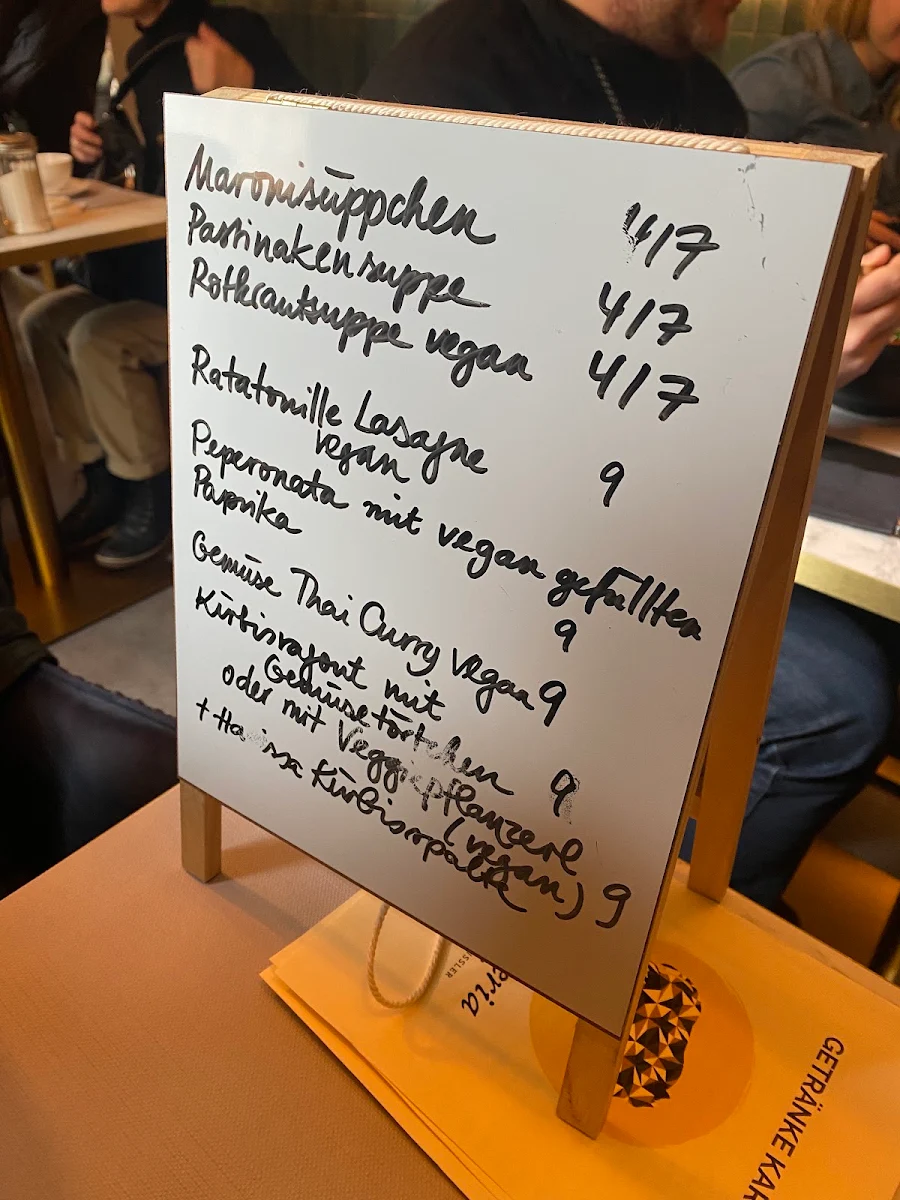 Maronisüppchen 4/7
Pastinakensuppe 4/7
Rotkrautsuppe vegan 4/7
Ratatouille Lasagne
vegan 9
Peperonata mit vegan gefüllten
Paprika 9
Gemüse Thai Curry vegan 9
Kürbisragout mit
Gemüsetörtchen 9
oder mit Veggiepflanzerl
(vegan) 9
+ Harissa Kürbisspalte
eria
SSLER
GETRÄNKE KAR